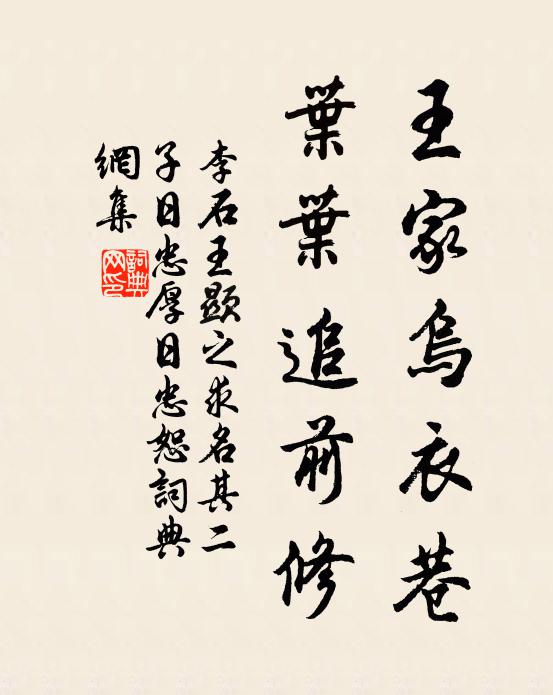 王家烏衣巷
葉葉追前修
李石王顯之求名其二
子曰忠厚曰忠恕詞典
網集
詞典網印